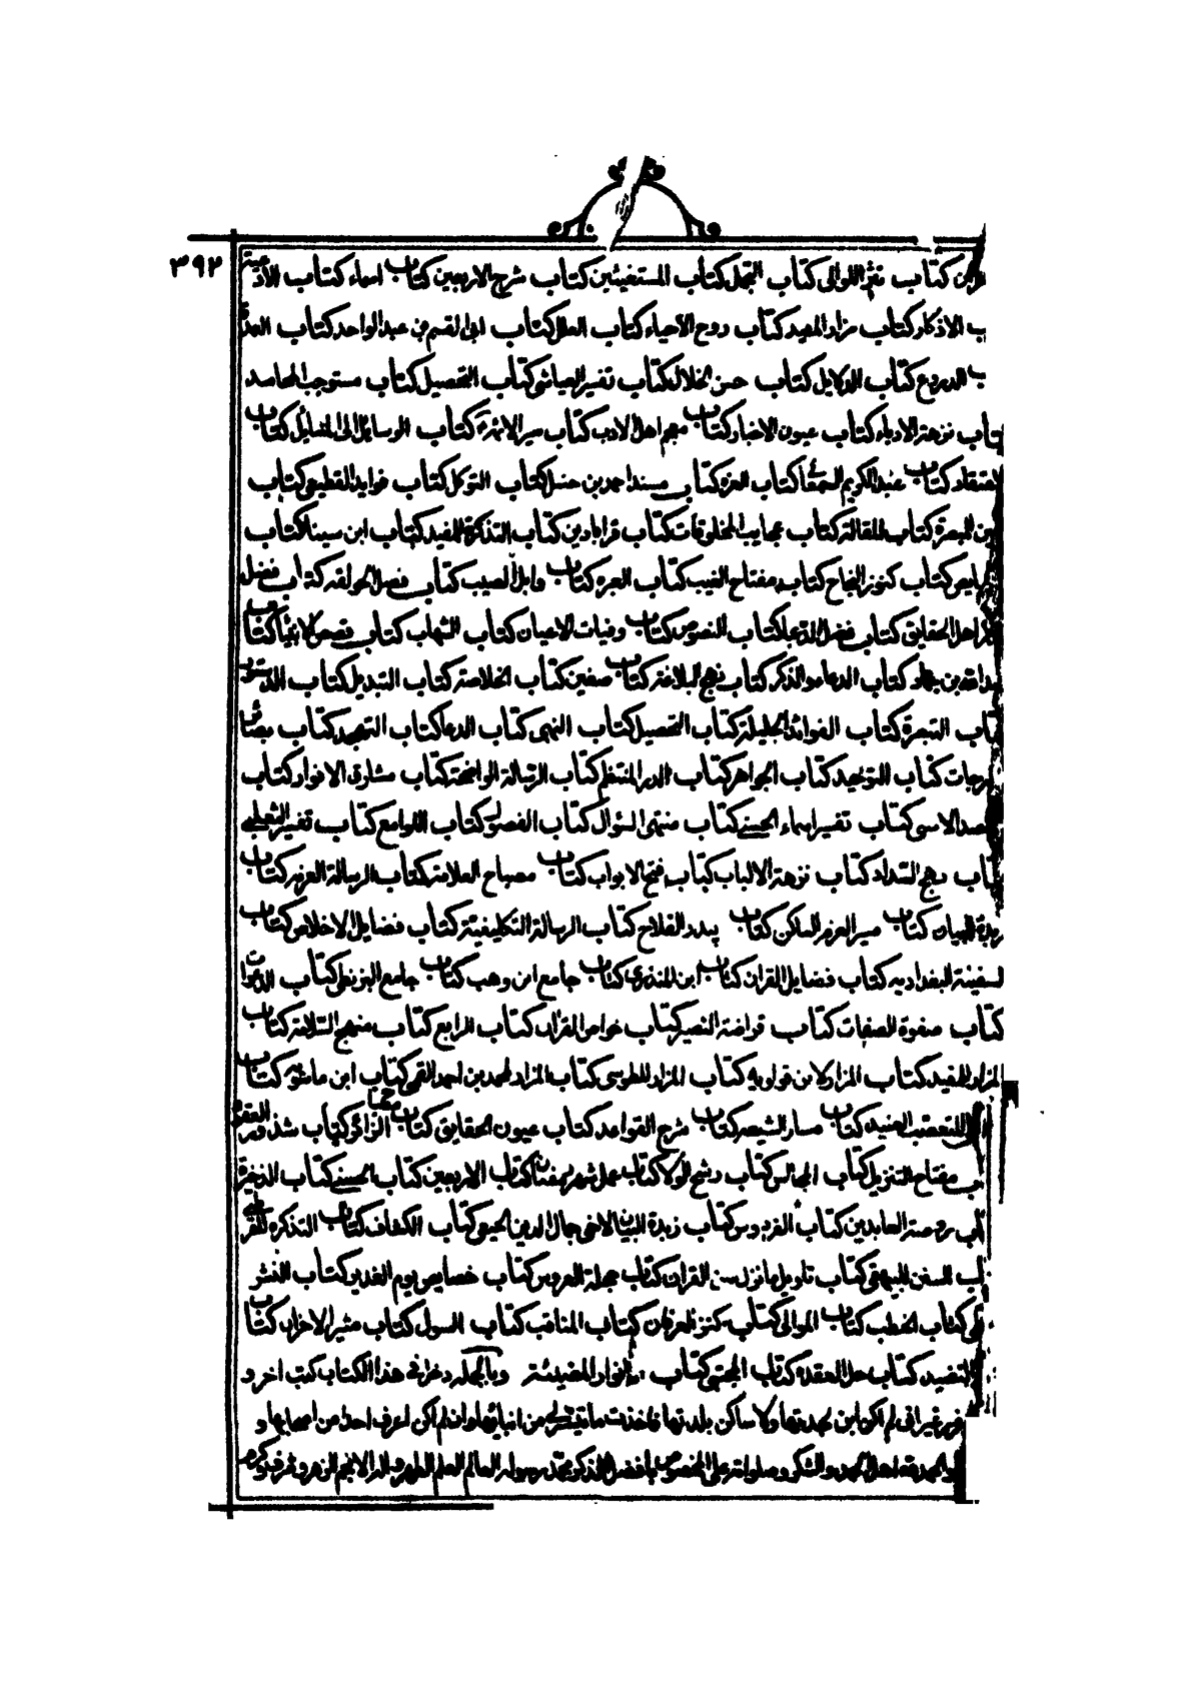 ٣٩٢
كتاب نثر اللوالى كتاب التجمل كتاب المستغيثين كتاب شرح الاربعين كتاب اسماء كتاب الأدعية
الاذكار كتاب مزار المفيد كتاب روح الأحياء كتاب العلل كتاب ابى القسم بن عبد الواحد كتاب العدة
الدروع كتاب الدلايل كتاب حسن الخلال كتاب تفسير العياشى كتاب التحصيل كتاب مستوجب المحامد
كتاب نزهة الادباء كتاب عيون الاخبار كتاب معجم اهل الادب كتاب سير الائمة كتاب الوسائل الى المسايل كتاب
الاعتقاد كتاب عبد الكريم السمعانى كتاب العزه كتاب مسند احمد بن حنبل كتاب التوكل كتاب فوايد القطيعى كتاب
كتاب المقالة كتاب عجايب المخلوقات كتاب قرابادين كتاب التذكرة للمفيد كتاب ابن سينا كتاب
كتاب كنوز النجاح كتاب مفتاح الغيب كتاب العزه كتاب وابل الصيب كتاب فضل الحولقه كتاب فضل
اهل الحقايق كتاب فضل الدعاء كتاب النصوص كتاب وفيات الاعيان كتاب الشهاب كتاب قصص الانبياء كتاب
بن حماد كتاب الدعاء والذكر كتاب نهج البلاغة كتاب صفين كتاب الخلاصة كتاب التبديل كتاب الدستور
كتاب التبصرة كتاب الفوائد الجليلة كتاب التحصيل كتاب النهى كتاب الدعا كتاب التهجد كتاب بصائر
الدرجات كتاب التوحيد كتاب الجواهر كتاب الدر المنتظم كتاب الرسالة الواضحة كتاب مشارق الانوار كتاب
المقصد الاسنى كتاب تفسير اسماء الحسنى كتاب منتهى السؤال كتاب الفصول كتاب اللوامع كتاب تفسير الثعلبى
كتاب نهج السداد كتاب نزهة الالباب كتاب فتح الابواب كتاب مصباح العلامة كتاب الرسالة العزيه كتاب
زبدة البيان كتاب مسير العزم الساكن كتاب بيدر الفلاح كتاب الرسالة التكليفية كتاب فضايل الاخلاص كتاب
السفينة البغداديه كتاب فضايل القران كتاب ابن المنذرى كتاب جامع ابن وهب كتاب جامع البزنطى كتاب الدعوات
كتاب صفوة الصفات كتاب قراضة النضير كتاب خواص القران كتاب الرابع كتاب منهج السلامة كتاب
المزار للمفيد كتاب المزار لابن قولويه كتاب المزار للطوسى كتاب المزار لمحمد بن احمد القمى كتاب ابن ماثويه كتاب
للمفيد كتاب مسار الشيعه كتاب شرح القواعد كتاب عيون الحقايق كتاب الزائر كتاب شذور العقود
كتاب مفتاح التنزيل كتاب المجالس كتاب رشح الولاء كتاب عمل شهر رمضان كتاب الاربعين كتاب الحسنى كتاب الذخيرة
كتاب روضة العابدين كتاب الفردوس كتاب زبدة البيان لاخى جمال الدين الجبعى كتاب الكشاف كتاب التذكره للقرطبى
كتاب السنن للبيهقى كتاب تاويل ما نزل من القران كتاب مجلة العروس كتاب خصايص يوم الغدير كتاب النشر
كتاب الخطب كتاب الموالى كتاب كنز العرفان كتاب المناقب كتاب السول كتاب مثير الاحزان كتاب
التنضيد كتاب حل العقده كتاب المجتبى كتاب الانوار المضيئة وبالجملة دخل فى هذا الكتاب كتب اخر و
غير انى لم اكن ابن بجدتها ولا ساكن بلدتها فاخذت ما تيسر لى من انبائها وان لم اكن اعرف احدا من اصحابها و
الحمد لله اهل الحمد والشكر وصلواته على المخصوص بافضل الذكر محمد رسوله العالم العلم الطهر واله الانجم الزهر